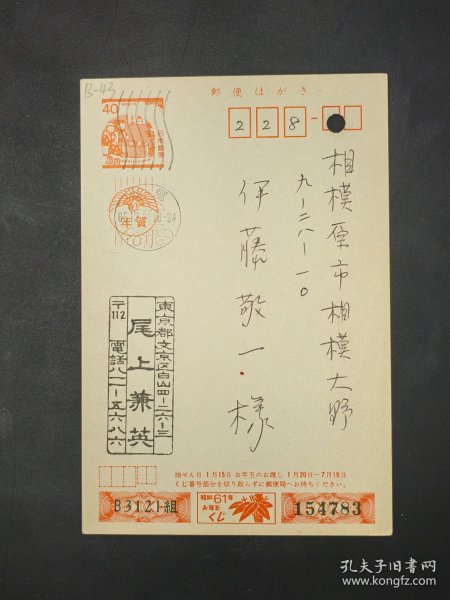 B-43
40
郵便はがき
228-
年賀
相模原市相模大野
九ー二八ー一〇
伊藤敬一様
東京都文京区白山四ー二六ー三
尾上兼英
〒112
電話八一一ー五六八六
抽せん日 1月15日 お年玉のお渡し 1月20日ー7月19日
くじ番号部分を切り取らずに郵便局へお持ちください。
B3121組
昭和61年
お年玉
くじ
154783
孔夫子旧书网
www.kongfz.com